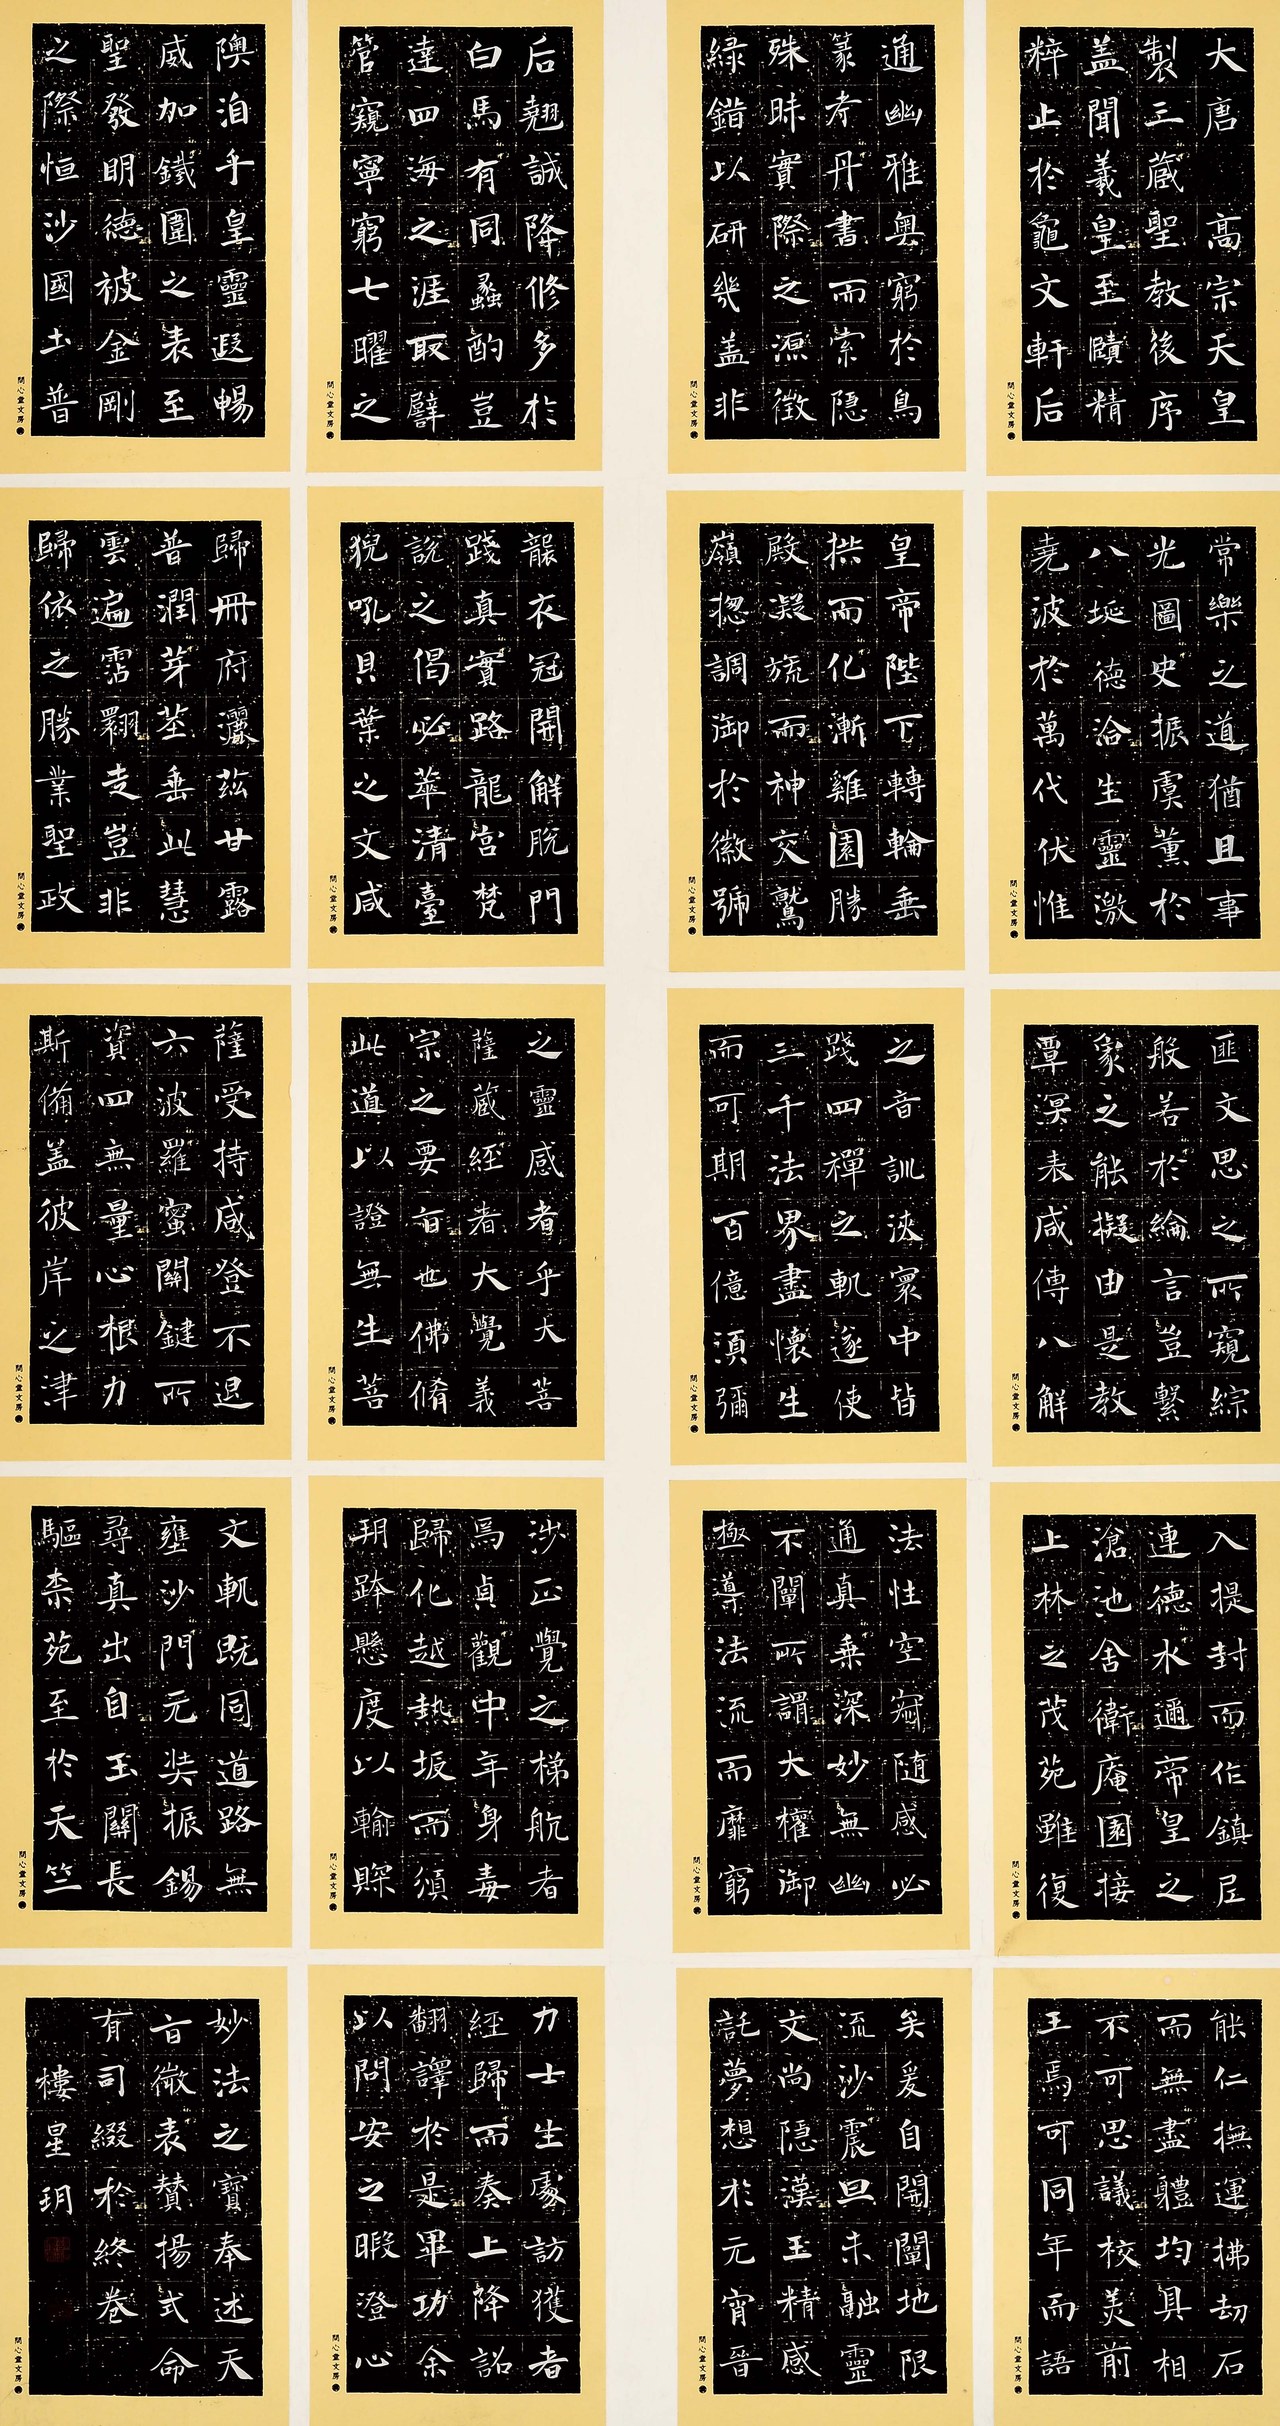 大唐 高宗天皇
製三藏聖教後序
盖聞義皇至賾精
粹止於龜文軒后
通幽雅奧窮於鳥
篆考丹書而索隱
殊昧實際之源徵
綠錯以研幾盖非
常樂之道猶且事
光圖史振虞薰於
八埏德洽生靈激
堯波於萬代伏惟
皇帝陛下轉輪垂
拱而化漸雞園勝
殿凝旒而神交鷲
嶺揔調御於徽號
匪文思之所窺綜
般若於綸言豈繫
象之能擬由是教
覃溟表咸傳八解
之音訓浹寰中皆
踐四禪之軌遂使
三千法界盡懷生
而可期百億須彌
入提封而作鎮尼
連德水邇帝皇之
滄池舍衛庵園接
上林之茂苑雖復
法性空寂隨感必
通真乘深妙無幽
不闡所謂大權御
極導法流而靡窮
能仁撫運拂劫石
而無盡體均具相
不可思議校美前
王焉可同年而語
矣爰自開闡地限
流沙震旦未融靈
文尚隱漢王精感
託夢想於元宵晉
后翹誠降修多於
白馬有同蠡酌豈
達四海之涯取譬
管窺寧窮七曜之
隩洎乎皇靈遐暢
威加鐵圍之表至
聖發明德被金剛
之際恒沙國土普
襲衣冠開解脫門
踐真實路龍宮梵
說之偈必萃清臺
猊吼貝葉之文咸
歸冊府灑茲甘露
普潤芽莖垂此慧
雲遍霑翾走豈非
歸依之勝業聖政
之靈感者乎大菩
薩藏經者大覺義
宗之要旨也佛脩
此道以證無生菩
薩受持咸登不退
六波羅蜜關鍵所
資四無量心根力
斯備盖彼岸之津
涉正覺之梯航者
焉貞觀中年身毒
歸化越熱坂而頒
玥跨懸度以輸賝
文軌既同道路無
壅沙門元奘振錫
尋真出自玉關長
驅柰苑至於天竺
力士生處訪獲者
經歸而奏上降詔
翻譯於是畢功余
以問安之暇澄心
妙法之寶奉述天
旨微表贊揚式命
有司綴於終卷
樓星玥